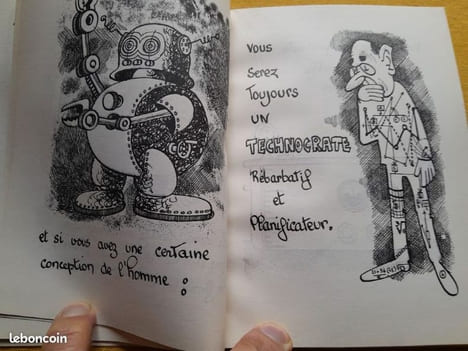 et si vous avez une certaine
conception de l'homme :
Vous
Serez
Toujours
un
TECHNOCRATE
Rébarbatif
et
Planificateur.
leboncoin